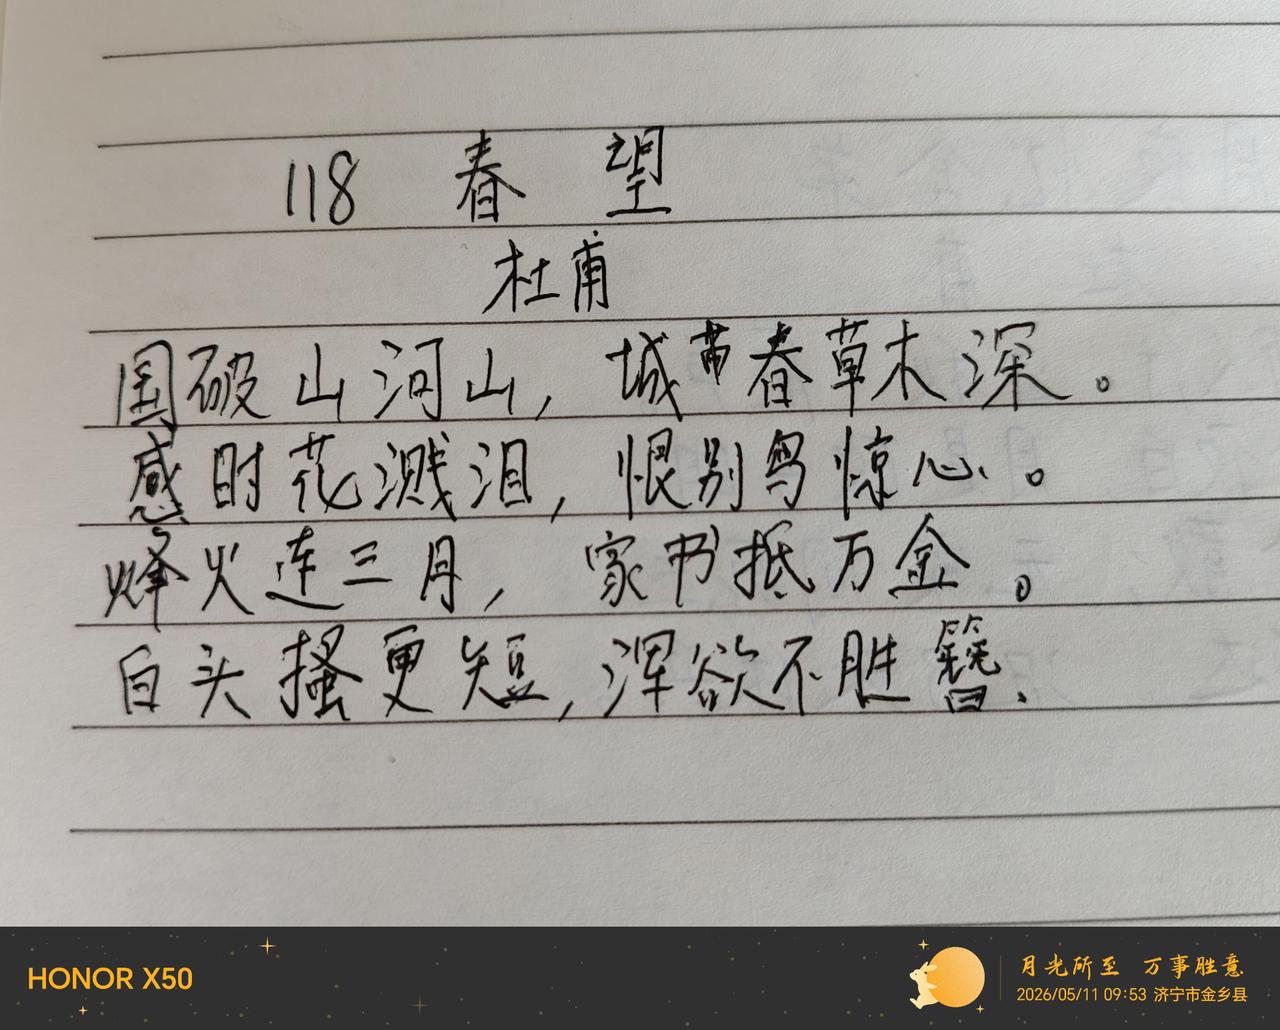 118 春 望
杜甫
国破山河山，城带春草木深。
感时花溅泪，恨别鸟惊心。
烽火连三月，家书抵万金。
白头搔更短，浑欲不胜簪.
HONOR X50
月光所至 万事胜意
2026/05/11 09:53 济宁市金乡县